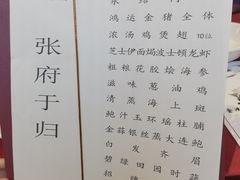 张府于归
鸿运金猪全体
浓汤鸡煲翅10位
芝士伊面焗波士顿龙虾
粗粮花胶烩海参
滋味葱油鸡
清蒸海上斑
鲍汁玉环瑶柱脯
金蒜银丝蒸大连鲍
白发齐眉
碧绿田园时蔬